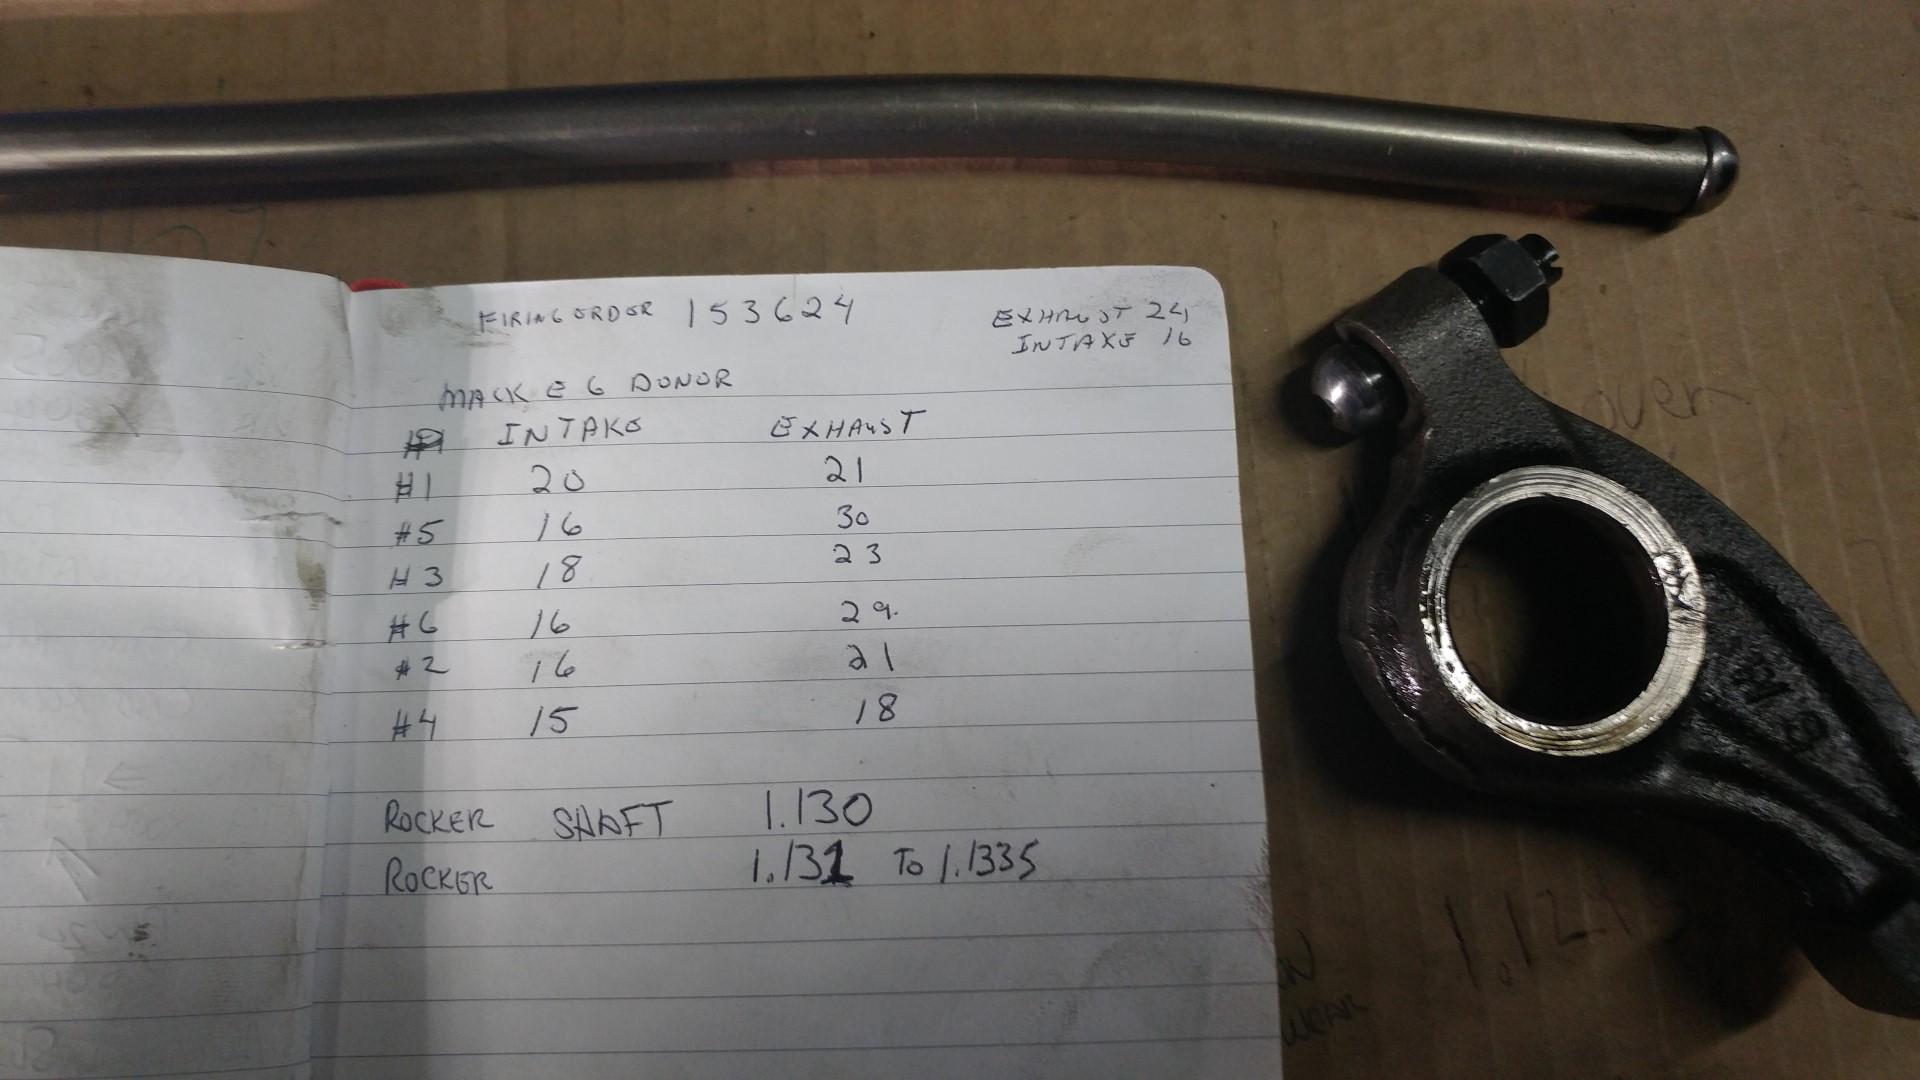 FIRING ORDER 153624
EXHAUST 24
INTAKE 16
MACK E 6 DONOR
INTAKE EXHAUST
#1 20 21
#5 16 30
#3 18 23
#6 16 29.
#2 16 21
#4 15 18
ROCKER SHAFT 1.130
ROCKER 1.131 TO 1.1335
over
WEAR